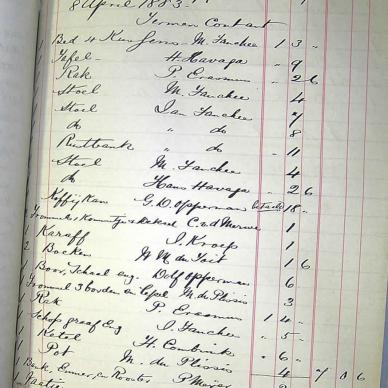 8 April 1883
Termen Contant
1 Bed 4 Kussens M. Tanchee 1 3 "
Tafel H Havaga " 9
Rak P. Erasmus " 2 6
Stoel M. Tanchee 4
Stoel Jan Tanchee
do " do 8
Rustbank " do " 11
Stoel M. Tanchee 4
do Hans Havaga " 2 6
Koffij Kan G. D. Opperman betaald 18 "
Trommel, Kommetjes C. v d Merwe 1
1 Karaff J. Kroep 1
2 Boeken W M du Toit 1 6
1 Boor, Schaal eng. Dolf Opperman 6
Trommel 3 borden en Lepel M. du Plessis 3
Rak P. Erasmus 1 4 "
Schop graaf Eng J. Tanchee " 5 "
Ketel Th. Combrink " 6 "
Pot M. du Plessis 4
1 Bank, Emmer, en Rooster P Meijer 2